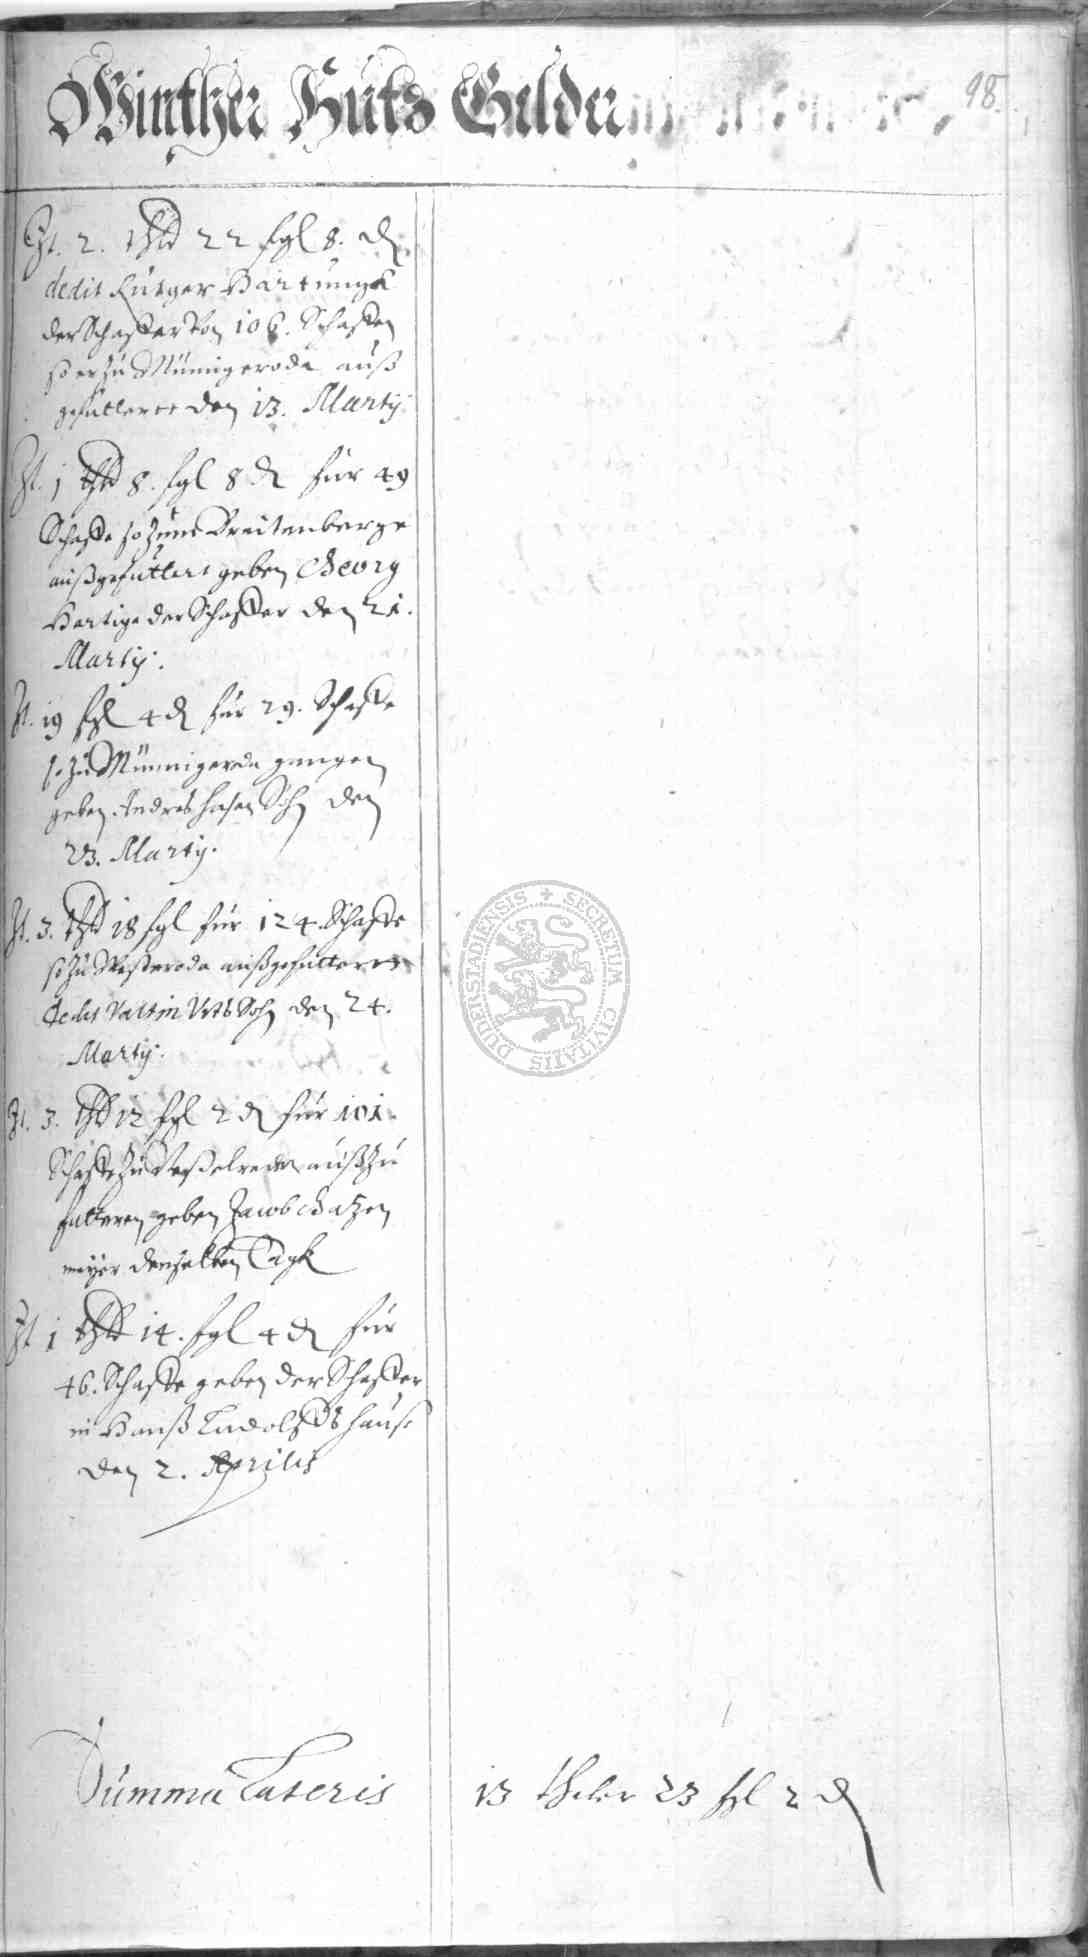 Winther Huts Gelder
98.
It. 2. thlr 22 sgl 8. d
dedit Rutger Hartungk
der Schaffer von 106. Schaffen
so er zu Münnigeroda auß
gefuttert den 13. Martij.
It. 1 thlr 8. sgl 8 d für 49
Schaffe so zum Breitenberge
außgefuttert geben Georg
Hartige der Schaffer den 21.
Martij.
It. 19 sgl 4 d für 29. Schaffe
so zu Münnigeroda gangen
geben Andres hasen Sohn den
23. Martij.
It. 3. thlr 18 sgl für 124. Schaffe
so zu außgefuttert
dedit Valtin Sohn den 24.
Martij.
It. 3. thlr 12 sgl 2 d für 101.
Schaffe zu außzu
futteren geben Jacob Gatzen
meyer denselben Tagk
It 1 thlr 14. sgl 4 d für
46. Schaffe geben der Schaffer
in Hanß Ludolffs hause
den 2. Aprilis
Summa Lateris 13 thaler 23 sgl 2 d
SECRETUM CIVITATIS DUDERSTADIENSIS